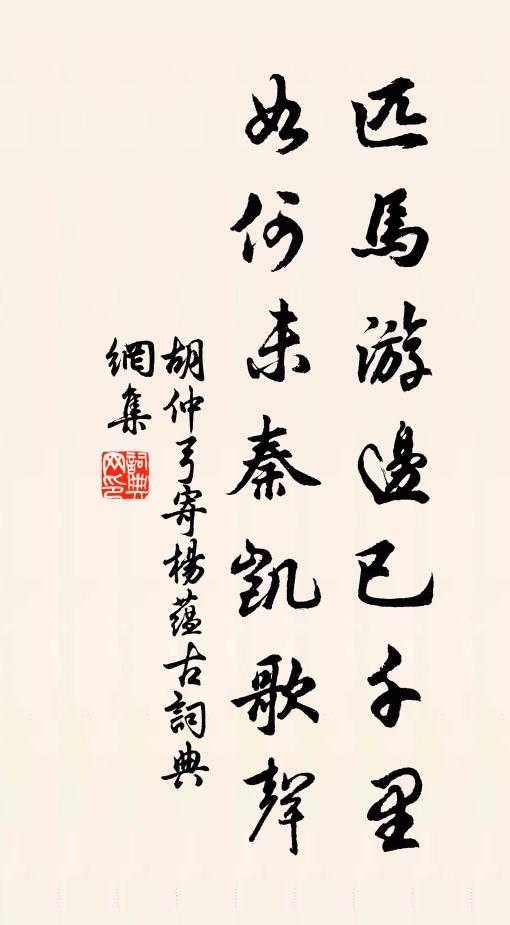 匹馬游邊已千里
如何未秦凱歌聲
胡仲弓寄楊蘊古詞典
網集
詞典
网印